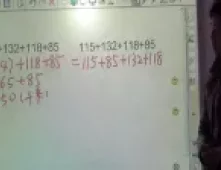 +132+118+85 115+132+118+85
+118+85 =115+85+132+118
65+85